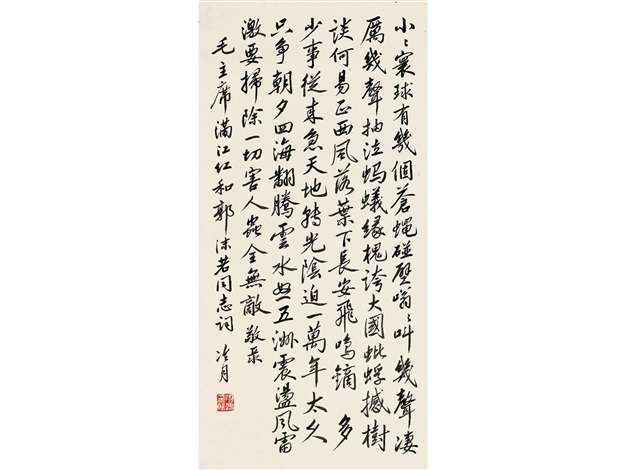 小〻寰球有幾個蒼蝿碰壁嗡〻叫幾聲凄
厲幾聲抽泣螞蟻緣槐誇大國蚍蜉撼樹
談何易正西風落葉下長安飛鳴鏑 多
少事從來急天地轉光陰迫一萬年太久
只争朝夕四海翻騰雲水怒五洲震盪風雷
激要掃除一切害人蟲全無敵 敬录
毛主席满江红和郭沫若同志词 冷月